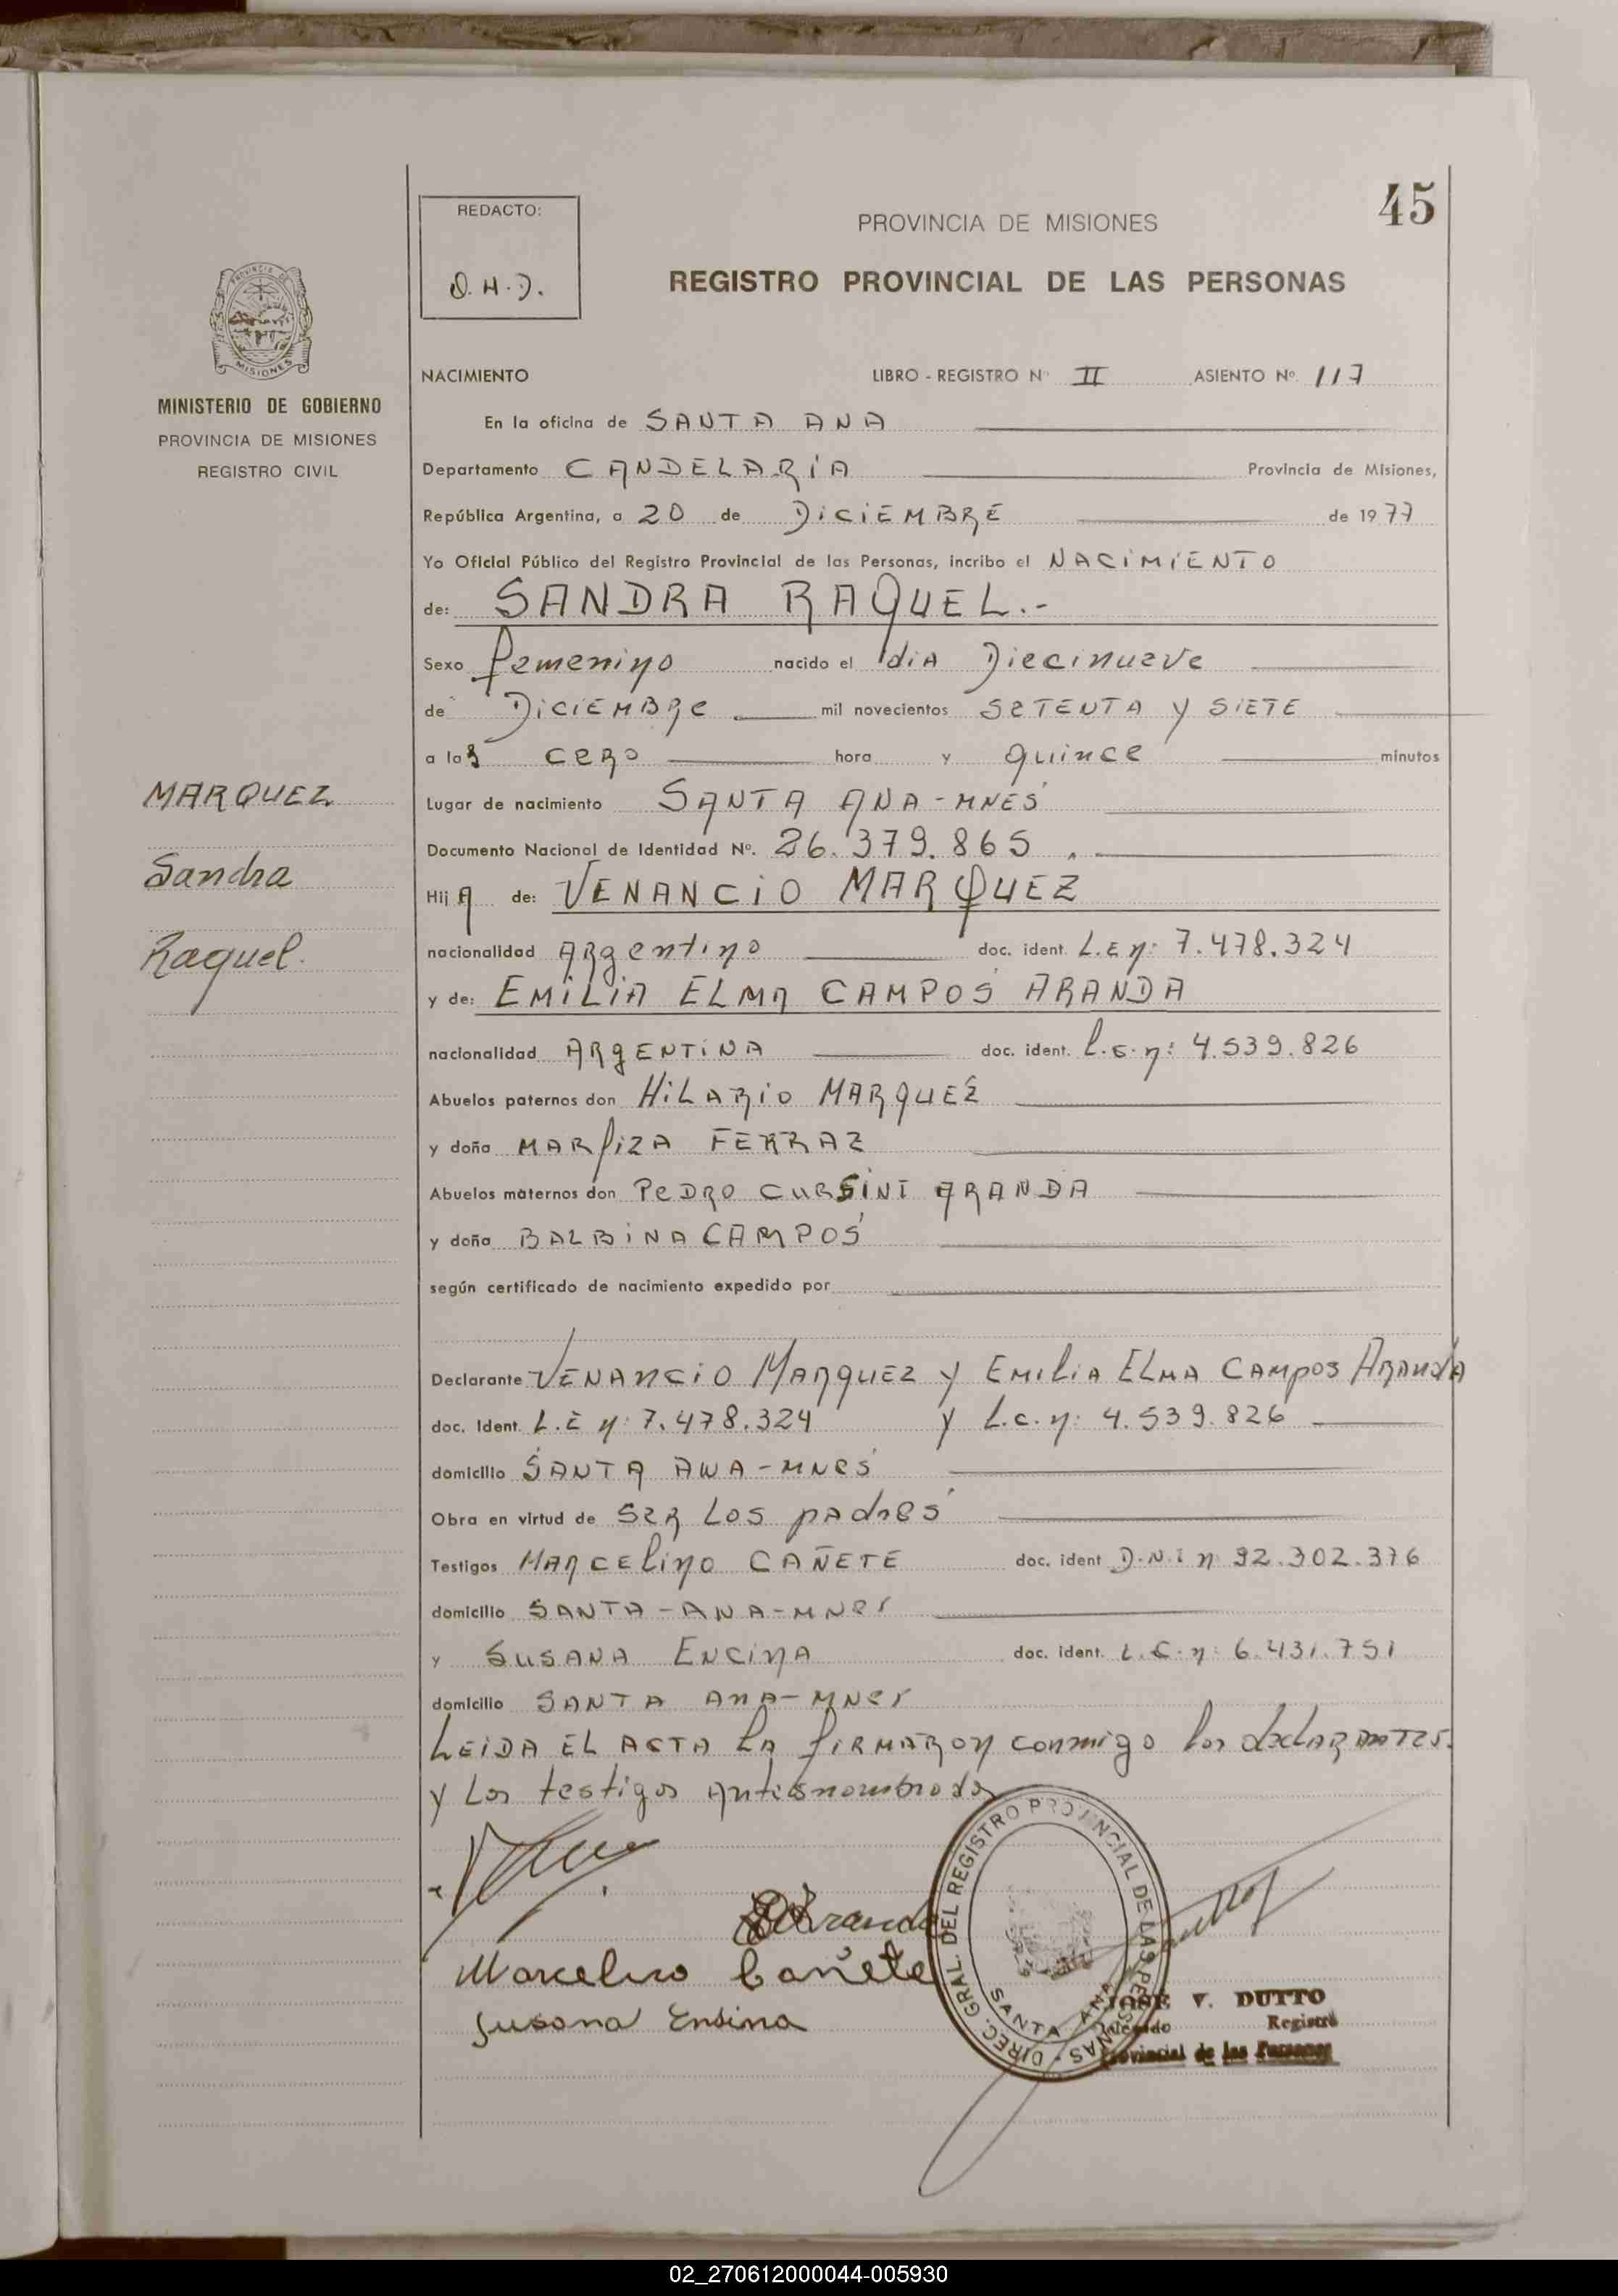 45
REDACTO:
PROVINCIA DE MISIONES
O.H.D.
REGISTRO PROVINCIAL DE LAS PERSONAS
MINISTERIO DE GOBIERNO
PROVINCIA DE MISIONES
REGISTRO CIVIL
MARQUEZ
Sandra
Raquel.
NACIMIENTO LIBRO - REGISTRO Nº II ASIENTO Nº 117
En la oficina de SANTA ANA
Departamento CANDELARIA Provincia de Misiones,
República Argentina, a 20 de DICIEMBRE de 1977
Yo Oficial Público del Registro Provincial de las Personas, incribo el NACIMIENTO
de: SANDRA RAQUEL.-
Sexo femenino nacido el dia Diecinueve
de DICIEMBRE mil novecientos SETENTA Y SIETE
a las cero hora y quince minutos
Lugar de nacimiento SANTA ANA-MNES
Documento Nacional de Identidad Nº. 26.379.865
Hij A de: VENANCIO MARQUEZ
nacionalidad Argentino doc. ident. L.E n: 7.478.324
y de: EMILIA ELMA CAMPOS ARANDA
nacionalidad ARGENTINA doc. ident. n: 4.539.826
Abuelos paternos don HILARIO MARQUEZ
y doña MARFIZA FERRAZ
Abuelos maternos don PEDRO CURSINI ARANDA
y doña BALBINA CAMPOS
según certificado de nacimiento expedido por
Declarante VENANCIO MARQUEZ Y EMILIA ELMA CAMPOS ARANDA
doc. Ident. L.E n: 7.478.324 y L.C. n: 4.539.826
domicilio SANTA ANA-MNES
Obra en virtud de SER LOS padres
Testigos MARCELINO CAÑETE doc. ident D.N.I n 92.302.376
domicilio SANTA-ANA-MNES
y SUSANA ENCINA doc. ident. L.C. n: 6.431.751
domicilio SANTA ANA-MNES
LEIDA EL ACTA LA FIRMARON conmigo los declarantes.
Y Los testigos Antesnombrados
Aranda
Marcelino Cañete
Susana Ensina
DIREC. GRAL. DEL REGISTRO PROVINCIAL DE LAS PERSONAS
SANTA ANA
JOSE V. DUTTO
Delegado Registro
Provincial de las Personas
02_270612000044-005930